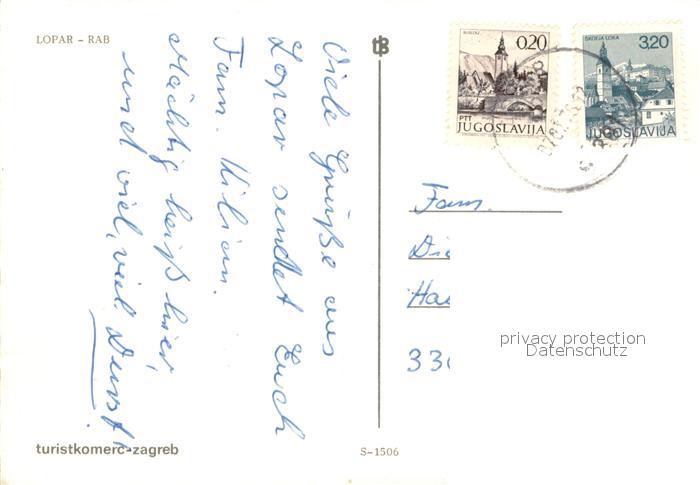 LOPAR – RAB
Viele Grüße aus
Lopar sendet Euch
Fam. Kilian.
Mächtig heiß hier,
und viel, viel Durst!
turistkomerc-zagreb
S-1506
tB
0,20
PTT
JUGOSLAVIJA
ŠKOFJA LOKA
3,20
JUGOSLAVIJA
Fam.
Di
Ha
33
privacy protection
Datenschutz